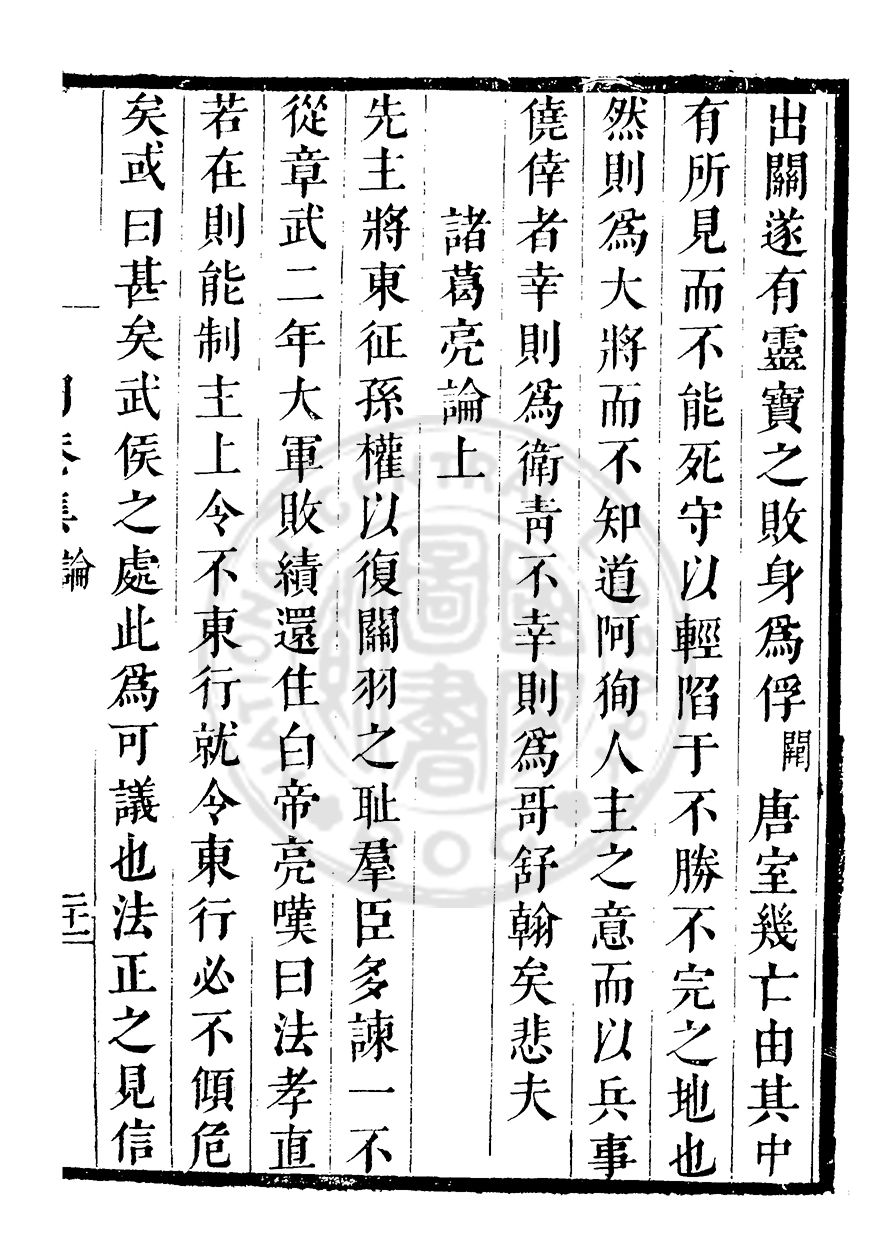 出關遂有靈寶之敗身爲俘闗唐室幾亡由其中
有所見而不能死守以輕陷于不勝不完之地也
然則爲大將而不知道阿狥人主之意而以兵事
僥倖者幸則爲衛靑不幸則爲哥舒翰矣悲夫
諸葛亮論上
先主將東征孫權以復關羽之耻羣臣多諫一不
從章武二年大軍敗績還住白帝亮嘆曰法孝直
若在則能制主上令不東行就令東行必不傾危
矣或曰甚矣武侯之處此爲可議也法正之見信
論 二十二